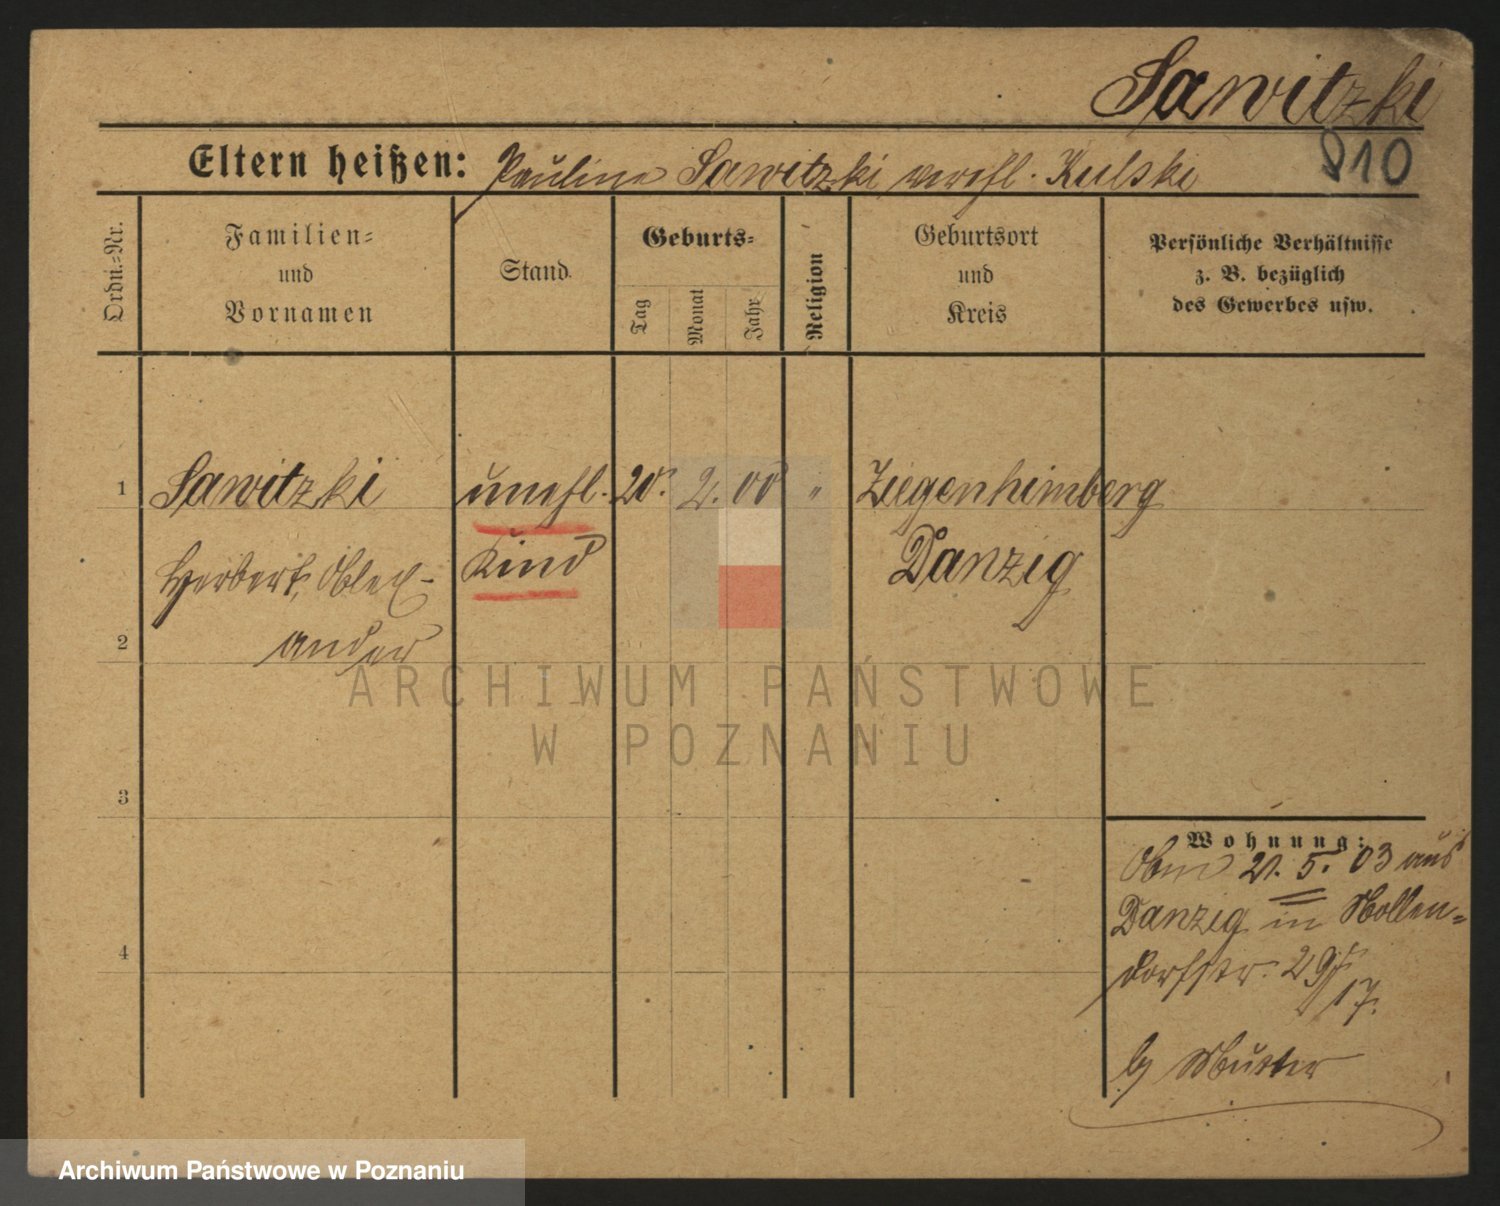 Sawitzki
Eltern heißen: Pauline Sawitzki verehl. Kulski
910
Ordn.-Nr.
Familien-
und
Vornamen
Stand
Geburts-
Tag
Monat
Jahr
Religion
Geburtsort
und
Kreis
Persönliche Verhältnisse
z. B. bezüglich
des Gewerbes usw.
1 Sawitzki unehl. 20. 2. 00 " Ziegenhimberg
Herbert, Alex- Kind Danzig
2 ander
ARCHIWUM PAŃSTWOWE
W POZNANIU
3
Wohnung:
21. 5. 03 aus
Danzig in Nollen-
4
dorfstr. 29
17.
b/ Mutter
Archiwum Państwowe w Poznaniu